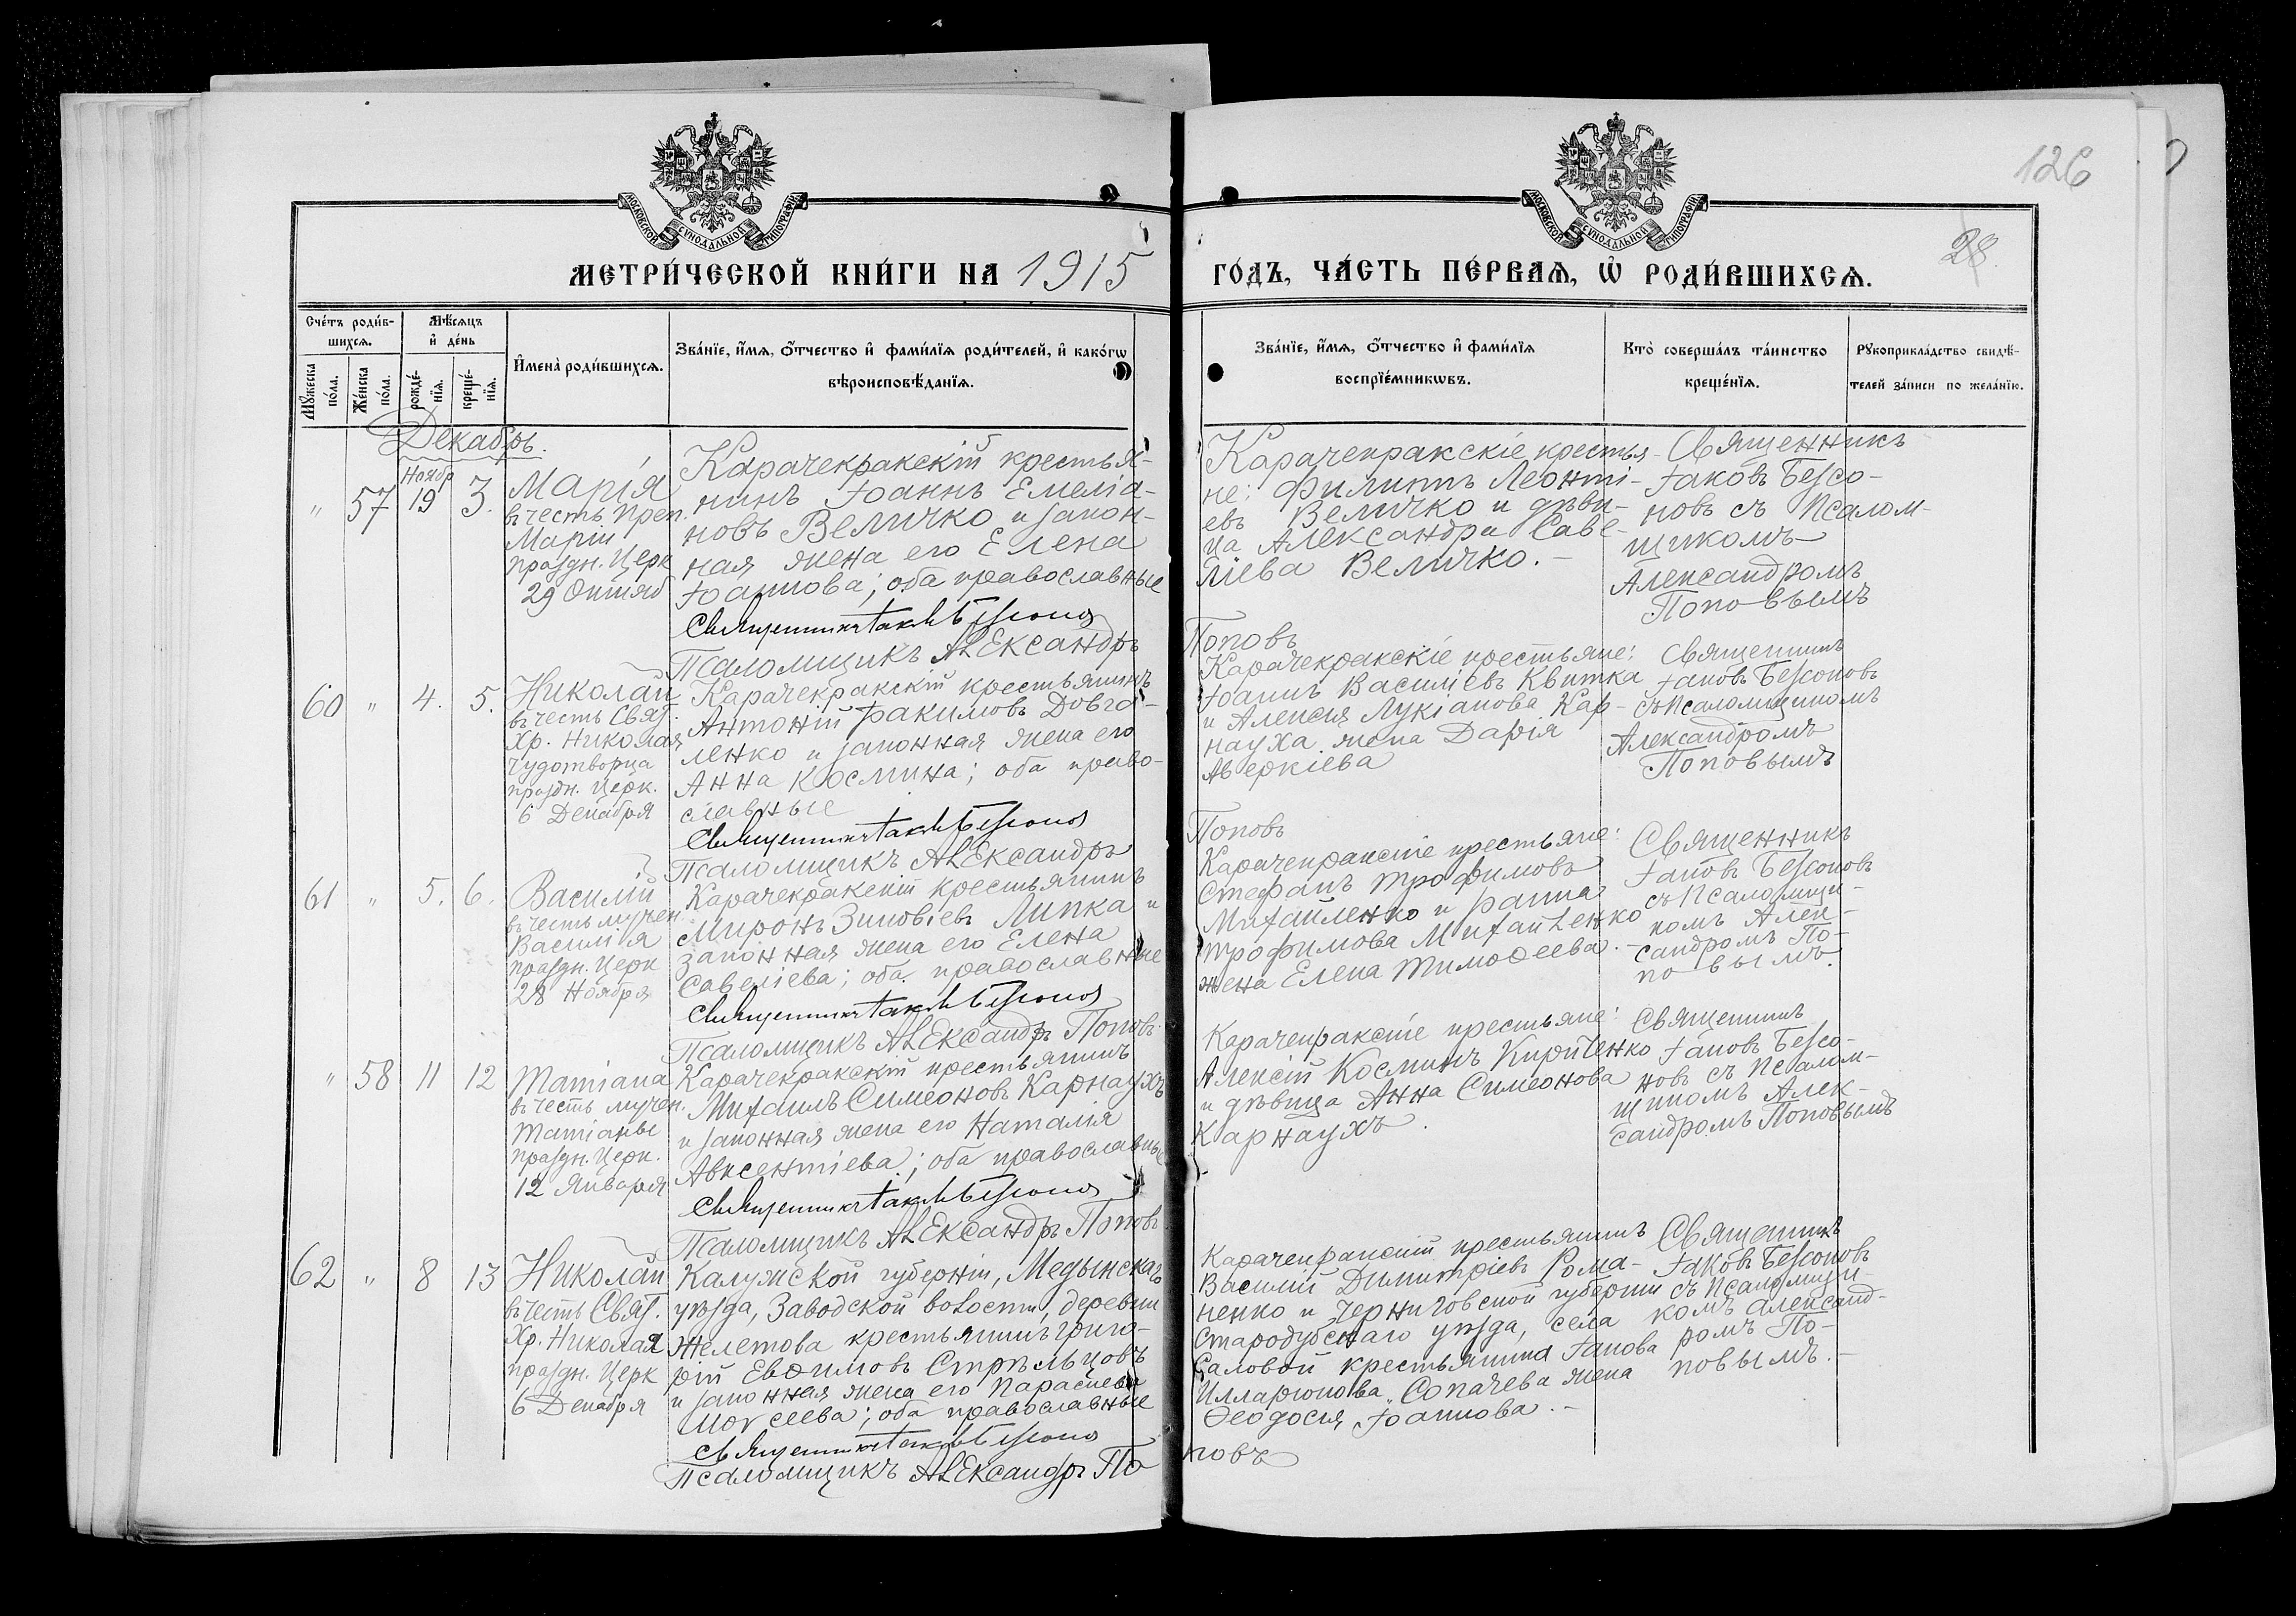 126
28
МОСКОВСКОЙ СѴНОДАЛЬНОЙ ТИПОГРАФІИ
МОСКОВСКОЙ СѴНОДАЛЬНОЙ ТИПОГРАФІИ
МЕТРИ́ЧЕСКОЙ КНИ́ГИ НА 1915
ГО́ДЪ, ЧА́СТЬ ПЕ́РВАѦ, Ѡ҆ РОДИ́ВШИХСѦ.
Сче́тъ роди́в-
шихсѧ.
Мꙋ́жеска по́ла.
Же́нска по́ла.
Мѣ́сѧцъ
и҆ де́нь
рожде́-нїѧ.
креще́-нїѧ.
И҆мена̀ роди́вшихсѧ.
Зва́нїе, и҆́мѧ, ѻ҆́тчество и҆ фами́лїѧ роди́телей, и҆ како́гѡ
вѣроисповѣ́данїѧ.
Зва́нїе, и҆́мѧ, ѻ҆́тчество и҆ фами́лїѧ
воспрїе́мникѡвъ.
Кто̀ соверша́лъ та́инство
креще́нїѧ.
Рꙋкоприкла́дство свидѣ́-
телей за́писи по жела́нїю.
Декабрь.
" 57
Ноябр
19
3.
Марія
въ честь Преп.
Маріи
праздн. Церк
29 Октяб
Карачекракскій крестья-
нинъ Іоаннъ Емелiа-
новъ Величко и закон-
ная жена его Елена
Іоаннова; оба православные
Священникъ Іаковъ Безсоновъ
Псаломщикъ Александръ
Поповъ
Карачекракскіе крестья-
не: Филиппъ Леонті-
евъ Величко и дѣви-
ца Александра Саве-
ліева Величко.-
Священникъ
Іаковъ Безсо-
новъ съ Псалом-
щикомъ
Александромъ
Поповымъ
60 " 4. 5.
Николай
въ честь Свят.
Хр. Николая
Чудотворца
праздн. Церк.
6 Декабря
Карачекракскій крестьянинъ
Антоній Іакимовъ Довга-
ленко и законная жена его
Анна Космина; оба право-
славные
Священникъ Іаковъ Безсоновъ
Псаломщикъ Александръ
Поповъ
Карачекракскіе крестьяне:
Іоаннъ Василіевъ Квитка
и Алексія Лукіанова Кар-
науха жена Дарія
Аверкіева
Священникъ
Іаковъ Безсоновъ
съ Псаломщикомъ
Александромъ
Поповымъ
61 " 5. 6.
Василій
въ честь мучен.
Василія
праздн. Церк
28 Ноября
Карачекракскій крестьянинъ
Миронъ Зиновіевъ Липка и
законная жена его Елена
Савеліева; оба православные
Священникъ Іаковъ Безсоновъ
Псаломщикъ Александръ Поповъ
Карачекракскіе крестьяне:
Стефанъ Трофимовъ
Михайленко и
Трофимова Михайленко
жена Елена Тимоѳеева.-
Священникъ
Іаковъ Безсоновъ
съ Псаломщи-
комъ Алек-
сандромъ По-
повымъ.
" 58 11 12
Татіана
въ честь мучен.
Татіаны
праздн. Церк.
12 Января
Карачекракскій крестьянинъ
Михаилъ Симеоновъ Карнаухъ
и законная жена его Наталія
Авксентіева; оба православные
Священникъ Іаковъ Безсоновъ
Псаломщикъ Александръ Поповъ
Карачекракскіе крестьяне:
Алексій Косминъ Кириленко
и дѣвица Анна Симеонова
Карнаухъ.
Священникъ
Іаковъ Безсо-
новъ съ Псалом-
щикомъ Алек-
сандромъ Поповымъ
62 " 8 13
Николай
въ честь Свят.
Хр. Николая
праздн. Церк
6 Декабря
Калужской губерніи, Медынскаго
уѣзда, Заводской волости, деревни
Желетова крестьянинъ Григо-
рій Евѳимовъ Стрѣльцовъ
и законная жена его Параскева
Моѵсеева; оба православные
Священникъ Іаковъ Безсоновъ
Псаломщикъ Александръ По
повъ
Карачекракскій крестьянинъ
Василій Димитріевъ Рома-
ненко и Черниговской губерніи
Стародубскаго уѣзда, села
Саловой крестьянина Іакова
Илларіонова Сопачева жена
Ѳеодосія Іоаннова.-
Священникъ
Іаковъ Безсоновъ
съ Псаломщи-
комъ Александ-
ромъ По-
повымъ.-